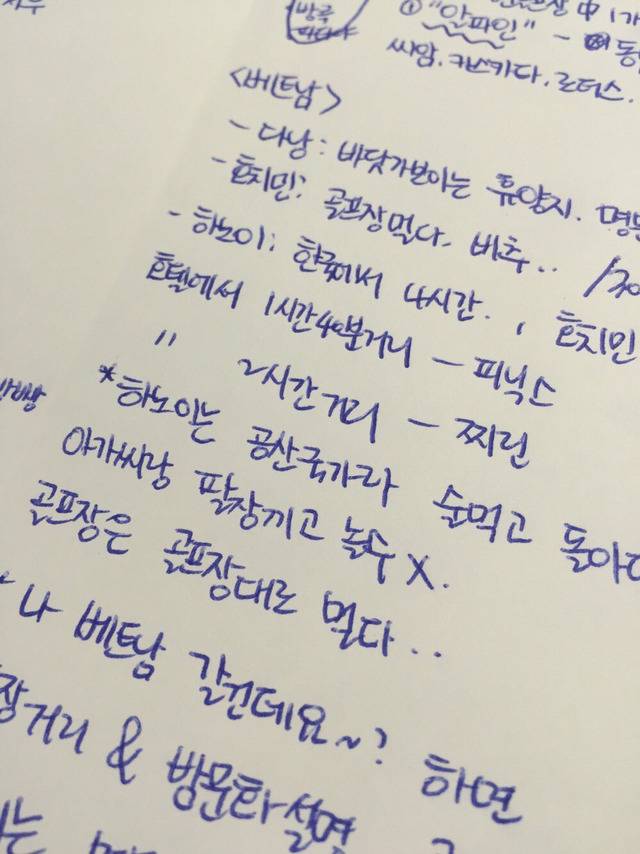 방콕
파타야
① "알파인" - 
씨암. 카스카다. 로터스.
<베트남>
- 다낭: 바닷가보이는 휴양지. 명문
- 호치민: 골프장멀다. 비추..
- 하노이: 한국에서 4시간. , 호치민
호텔에서 1시간40분거리 - 피닉스
" 2시간거리 - 찌린
*하노이는 공산국가라 술먹고 돌아다
아가씨랑 팔짱끼고 놀수 X.
골프장은 골프장대로 멀다..
나 베트남 갈건데요~? 하면
장거리 & 방문타설명